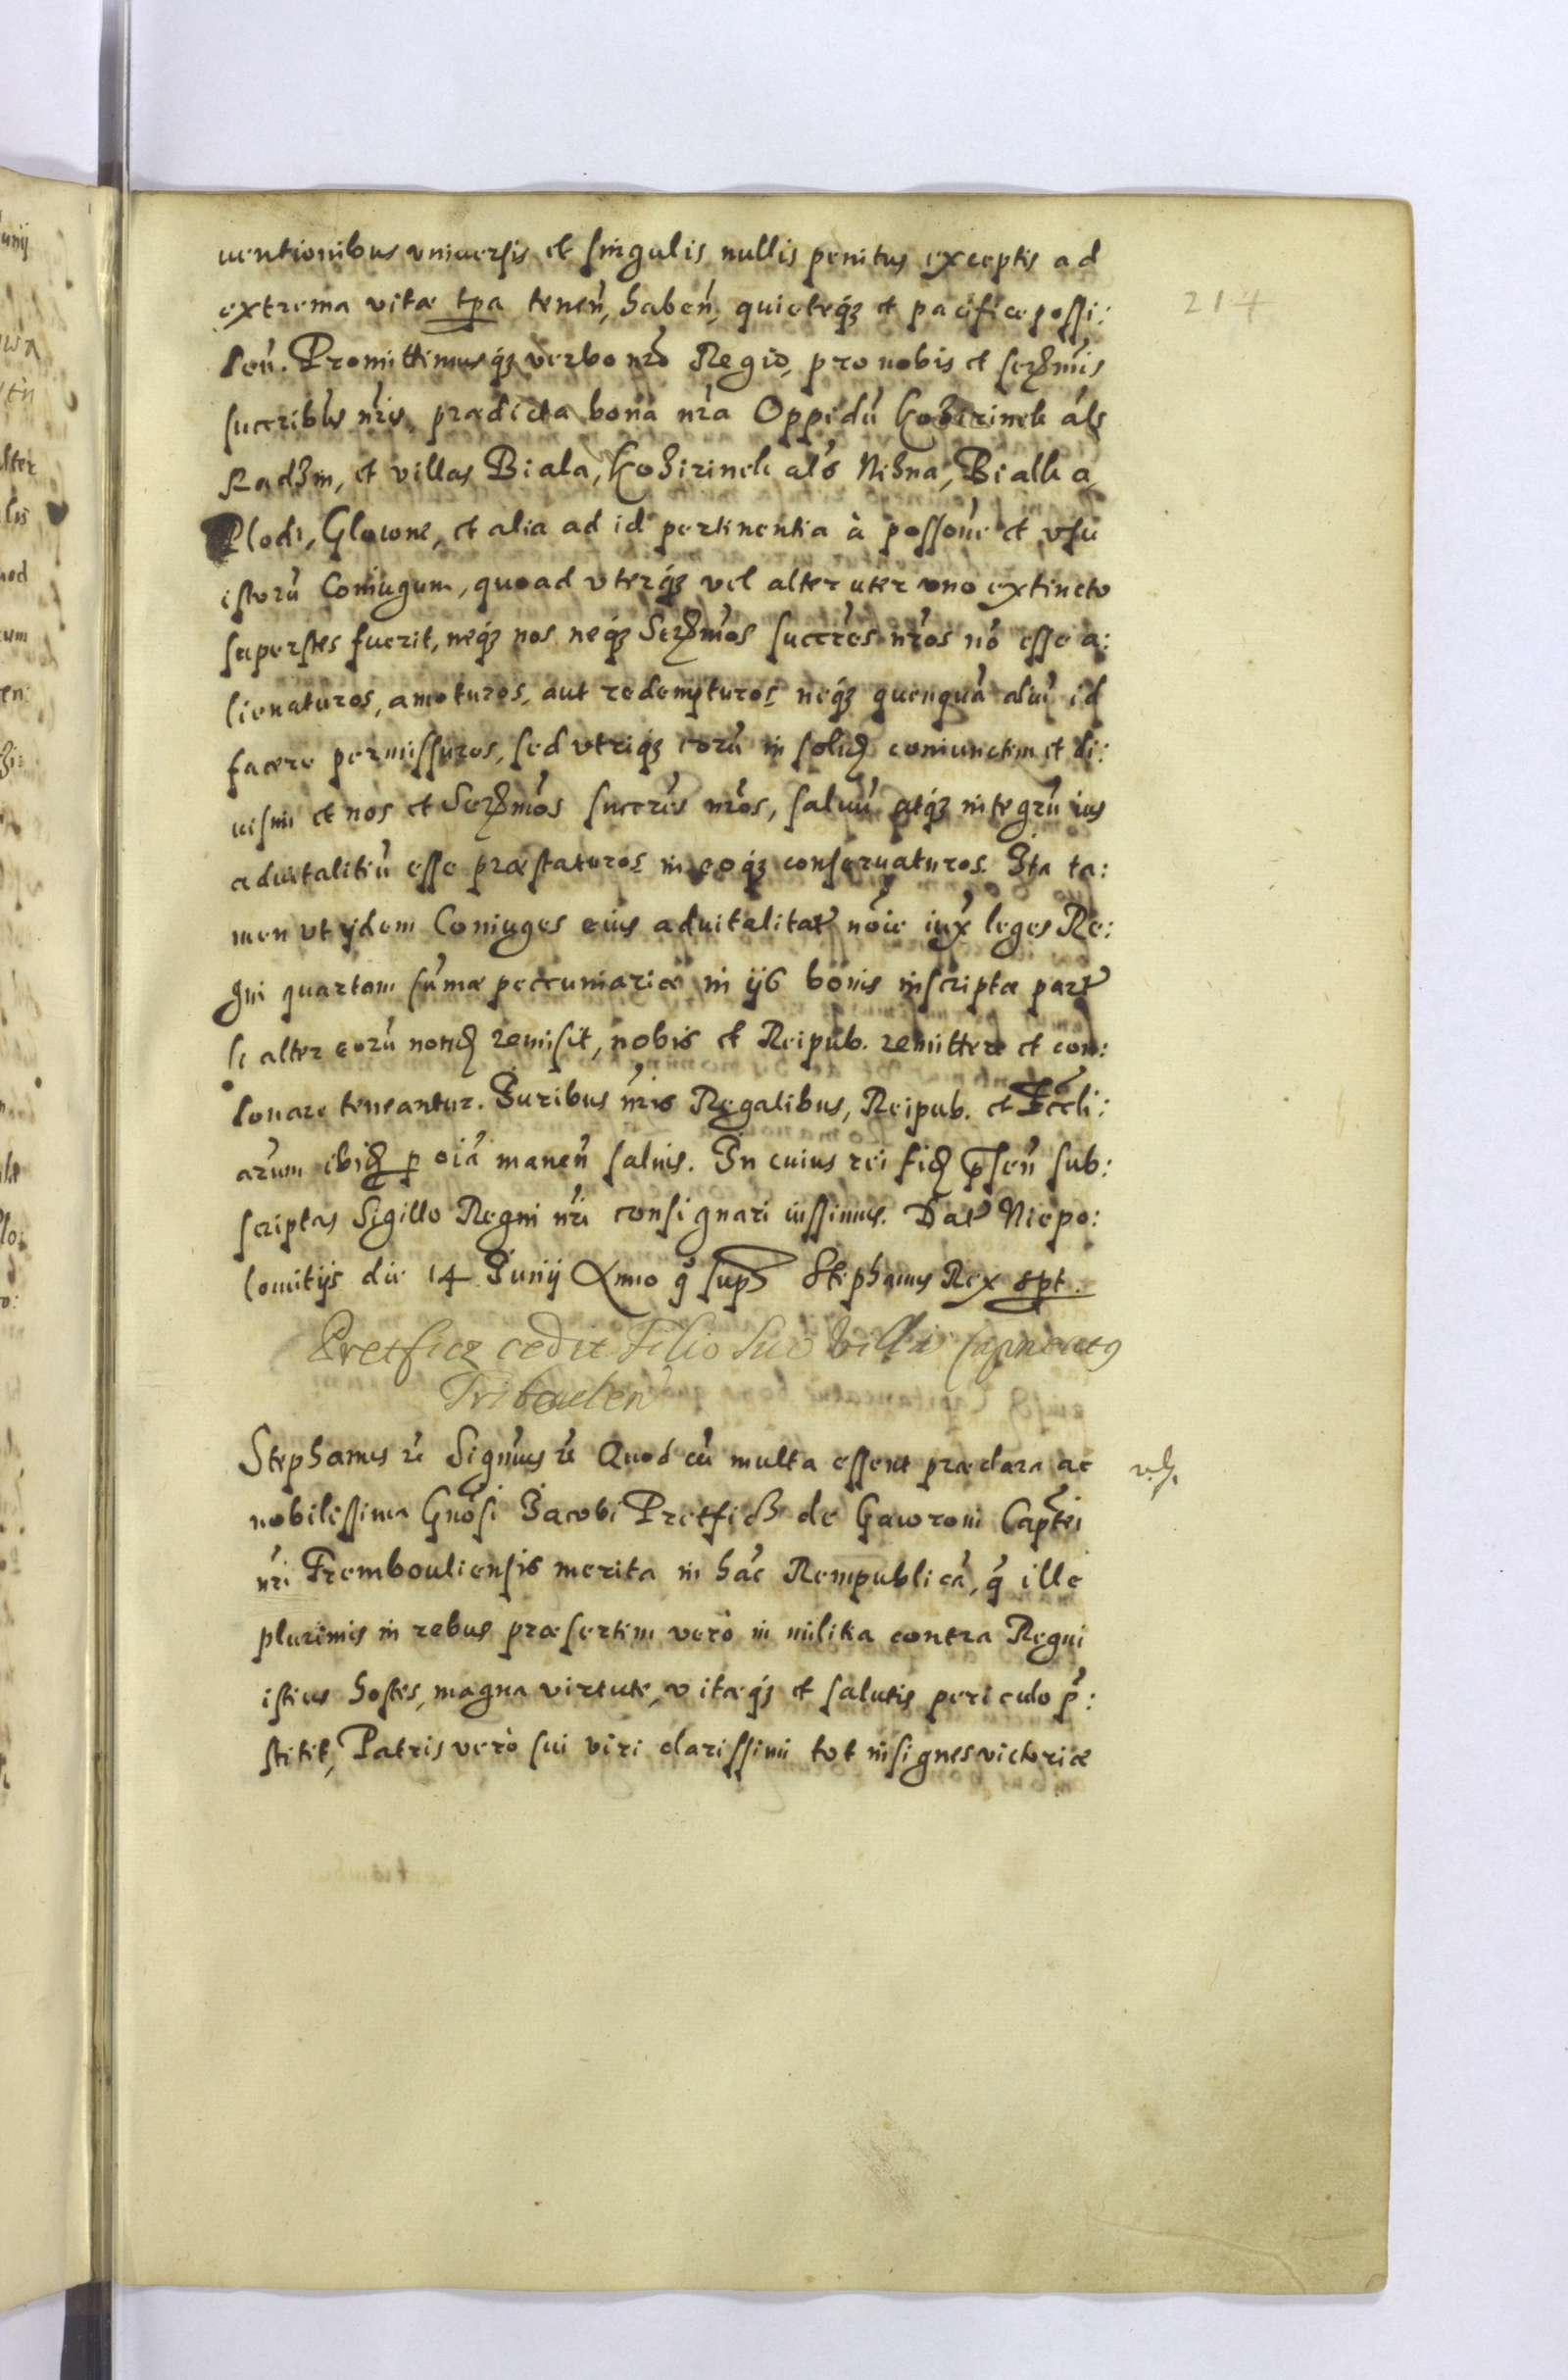 uentionibus vniuersis et singulis nullis penitus exceptis ad
extrema vitæ tpa tenen, haben, quieteqz et pacifice possi:
214
den. Promittimusqz verbo nro Regio, pro nobis et serzmis
succribus nris, prædicta bona nra Oppidũ Kozirinek als
Radzin, et villas Biala, Kozirinek als Nizna, Bialka
Plodi, Glowne, et alia ad id pertinentia à possone et vsu
istorũ Coniugum, quoad vterqz vel alteruter vno extincto
superstes fuerit, neqz nos neqz Serzmos succres nros nõ esse a:
lienaturos, amoturos, aut redempturos neqz quenquã aliũ id
facere permissuros, sed vtriqz eorũ in solid coniunctim et di:
uisim et nos et Serzmos succres nros, saluũ atqz integrũ ius
aduitalitiũ esse præstaturos in eoqz conseruaturos. Ita ta:
men vt ijdem Coniuges eius aduitalitat noie iux leges Re:
gni quartam sũmæ peccuniariæ in ijs bonis inscriptæ part
si alter eorũ nond remisit, nobis et Reipub. remittere et con:
donare teneantur. Iuribus nris Regalibus, Reipub. et Eccli:
arum ibid p oia manen saluis. In cuius rei fid psen sub:
scriptas Sigillo Regni nri consignari iussimus. Dat Niepo:
lomitijs die 14 Iunij Anno q sup Stephanus Rex spt.
Pretficz cedit Filio Suo Villã Capneatg
Tribowlen
Stephanus rc Signus rc Quod cũ multa essent præclara ac
nobilissima Gnosi Jacobi Pretficz de Gawroni Captei
nri Trembouliensis merita in hãc Rempublicã, q ille
plurimis in rebus præsertim verò in militia contra Regni
istius hostes, magna virtute, vitæqz et salutis periculo p:
stitit, Patris verò sui viri clarissimi tot insignes victoriæ